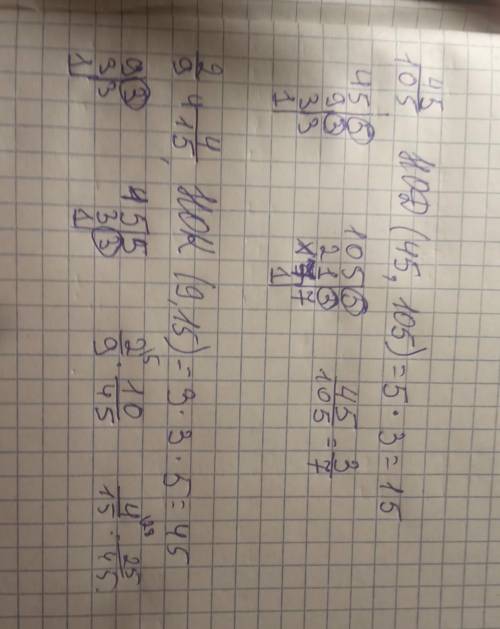 45/105 НОД (45, 105) = 5 · 3 = 15
45|5 105|5
9|3 21|3 45/105 = 3/7
3|3 7|7
1| 1|
2/9 и 4/15, НОК (9, 15) = 3 · 3 · 5 = 45
9|3 45|5 2/9 \5 · 10/45 4/15 · 25/45
3|3 3|3
1| 1|